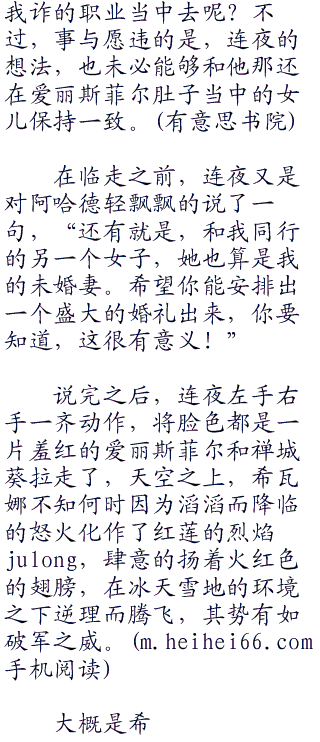 我诈的职业当中去呢？不
过，事与愿违的是，连夜的
想法，也未必能够和他那还
在爱丽斯菲尔肚子当中的女
儿保持一致。(有意思书院)
在临走之前，连夜又是
对阿哈德轻飘飘的说了一
句，“还有就是，和我同行
的另一个女子，她也算是我
的未婚妻。希望你能安排出
一个盛大的婚礼出来，你要
知道，这很有意义！”
说完之后，连夜左手右
手一齐动作，将脸色都是一
片羞红的爱丽斯菲尔和禅城
葵拉走了，天空之上，希瓦
娜不知何时因为滔滔而降临
的怒火化作了红莲的烈焰
julong，肆意的扬着火红色
的翅膀，在冰天雪地的环境
之下逆理而腾飞，其势有如
破军之威。(m.heihei66.com
手机阅读)
大概是希